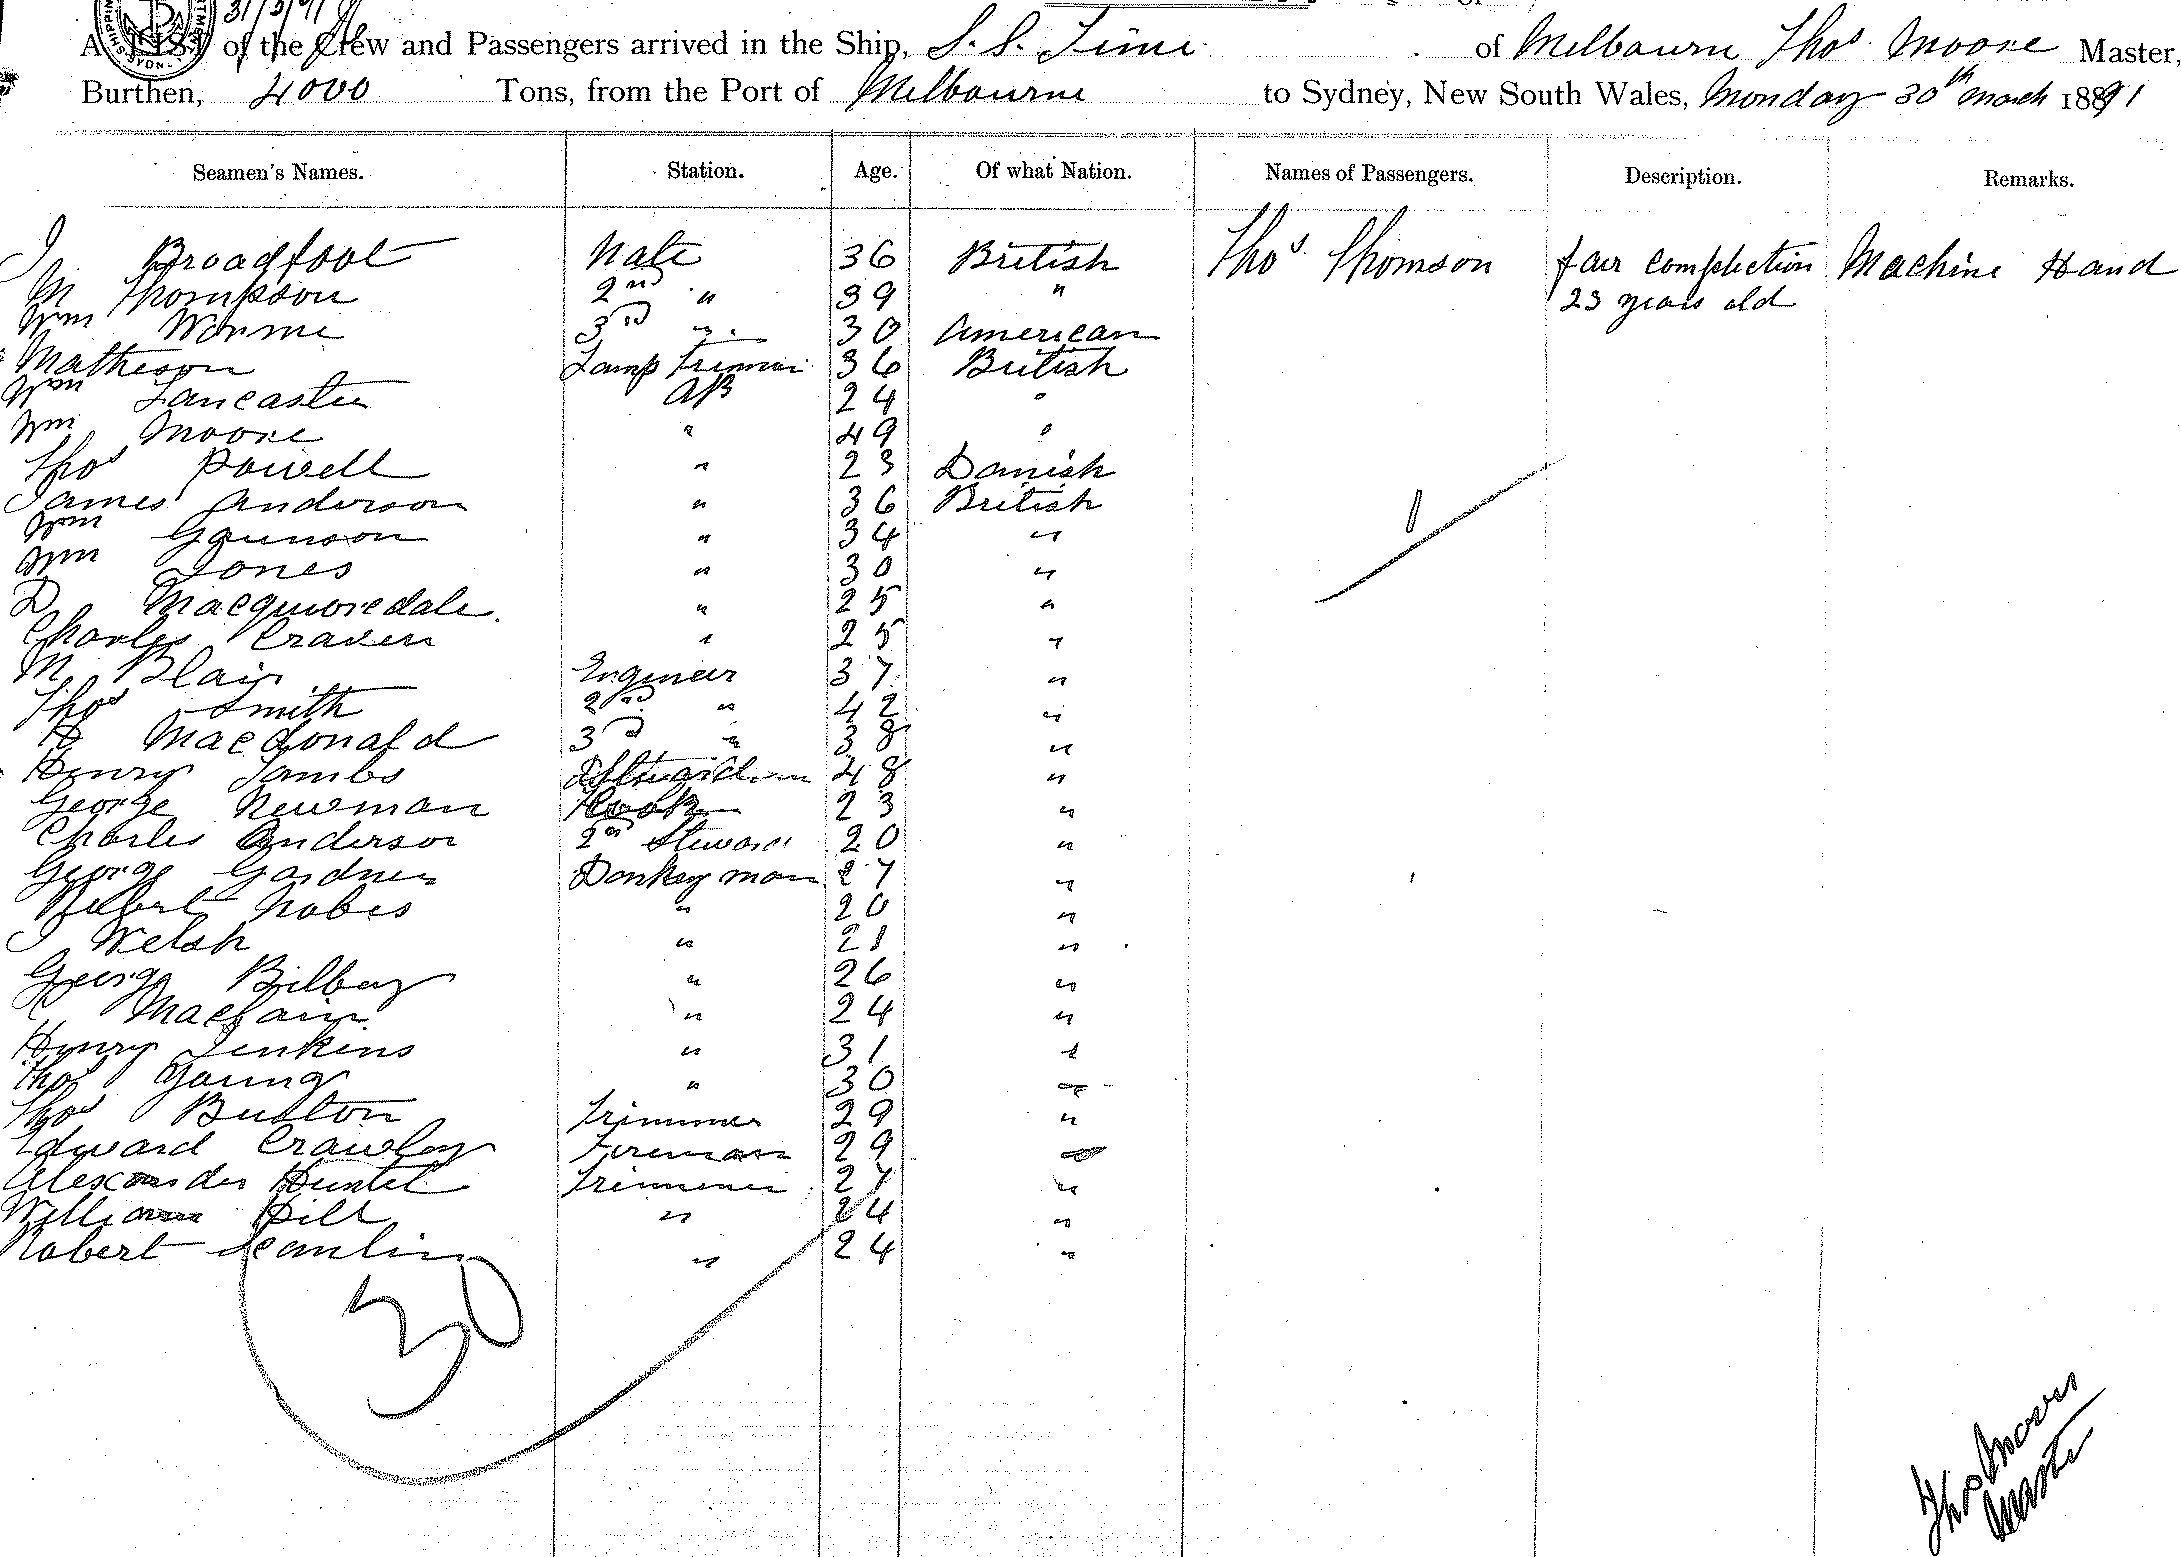 31/3/91
A LIST of the Crew and Passengers arrived in the Ship, S. S. Time of Melbourne Thos Moore Master,
Burthen, 4000 Tons, from the Port of Melbourne to Sydney, New South Wales, Monday 30th March 1891
Seamen's Names. Station. Age. Of what Nation. Names of Passengers. Description. Remarks.
J Broadfoot Mate 36 British Thos Thomson fair complection Machine Hand
M Thompson 2nd " 39 " 23 years old
Wm Worme 3rd " 30 American
Matheson Lamp Trimmer 36 British
Wm Lancaster AB 24 "
Wm Moore " 49 "
Thos Powell " 23 Danish
James Anderson " 36 British
Wm Gaunson " 34 "
Wm Jones " 30 "
D " 25 "
Charles Craven " 25 "
M Blair Engineer 37 "
Thos Smith 2nd " 42 "
H Macdonald 3rd " 38 "
Henry Lambs 48 "
George Newman Cook 23 "
Charles Anderson 2nd Steward 20 "
George Gardner Donkeyman 27 "
Robert Nobes " 20 "
J Welsh " 21 "
George Bilbey " 26 "
" 24 "
Henry Jenkins " 31 "
Thos Young " 30 "
Thos Buxton Trimmer 29 "
Edward Crawley Fireman 29 "
Alexander Hunter Trimmer 27 "
William Hill " 24 "
Robert " 24 "
30
1
Thos Moore
Master